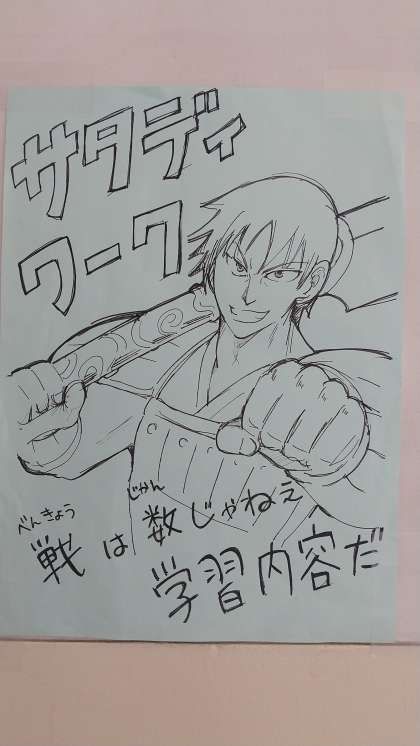 サタディ
ワーク
べんきょう
じかん
戦は数じゃねえ
学習内容だ